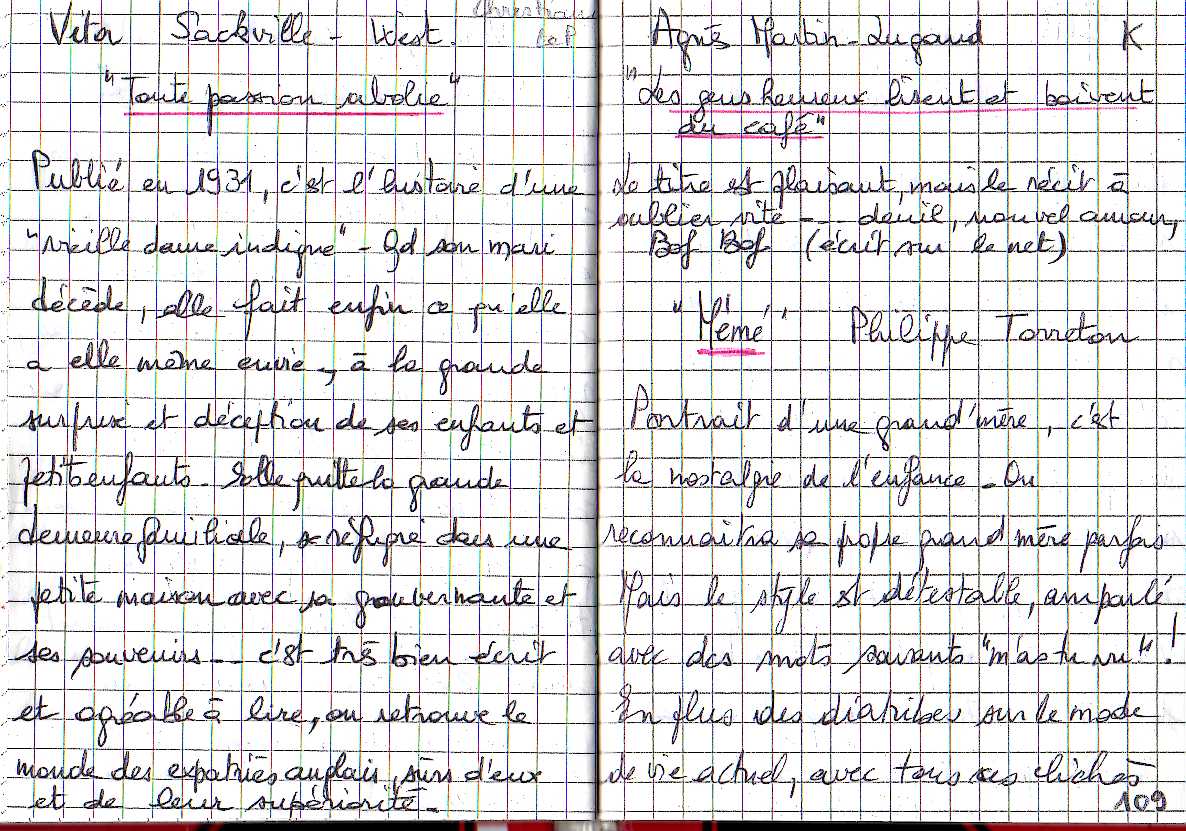 Christiane
Vita Sackville-West.
"Toute passion abolie"
Publié en 1931, c'est l'histoire d'une
"vieille dame indigne" - Qd son mari
décède, elle fait enfin ce qu'elle
a elle même envie -, à la grande
surprise et déception de ses enfants et
petits enfants. Elle quitte la grande
demeure familiale, se réfugie dans une
petite maison avec sa gouvernante et
ses souvenirs -- c'est très bien écrit
et agréable à lire, on retrouve le
monde des expatriés anglais, sûrs d'eux
et de leur supériorité -
Agnès Martin-Lugand K
"Les gens heureux lisent et boivent
du café"
Le titre est plaisant, mais le récit à
oublier vite --- deuil, nouvel amour,
Bof Bof (écrit sur le net)
"Mémé" Philippe Torreton
Portrait d'une grand'mère, c'est
la nostalgie de l'enfance - On
reconnaitra sa propre grand mère parfois
Mais le style est détestable, ampoulé
avec des mots savants "m'as tu vu" !
En plus des diatribes sur le mode
de vie actuel, avec tous ces clichés
109